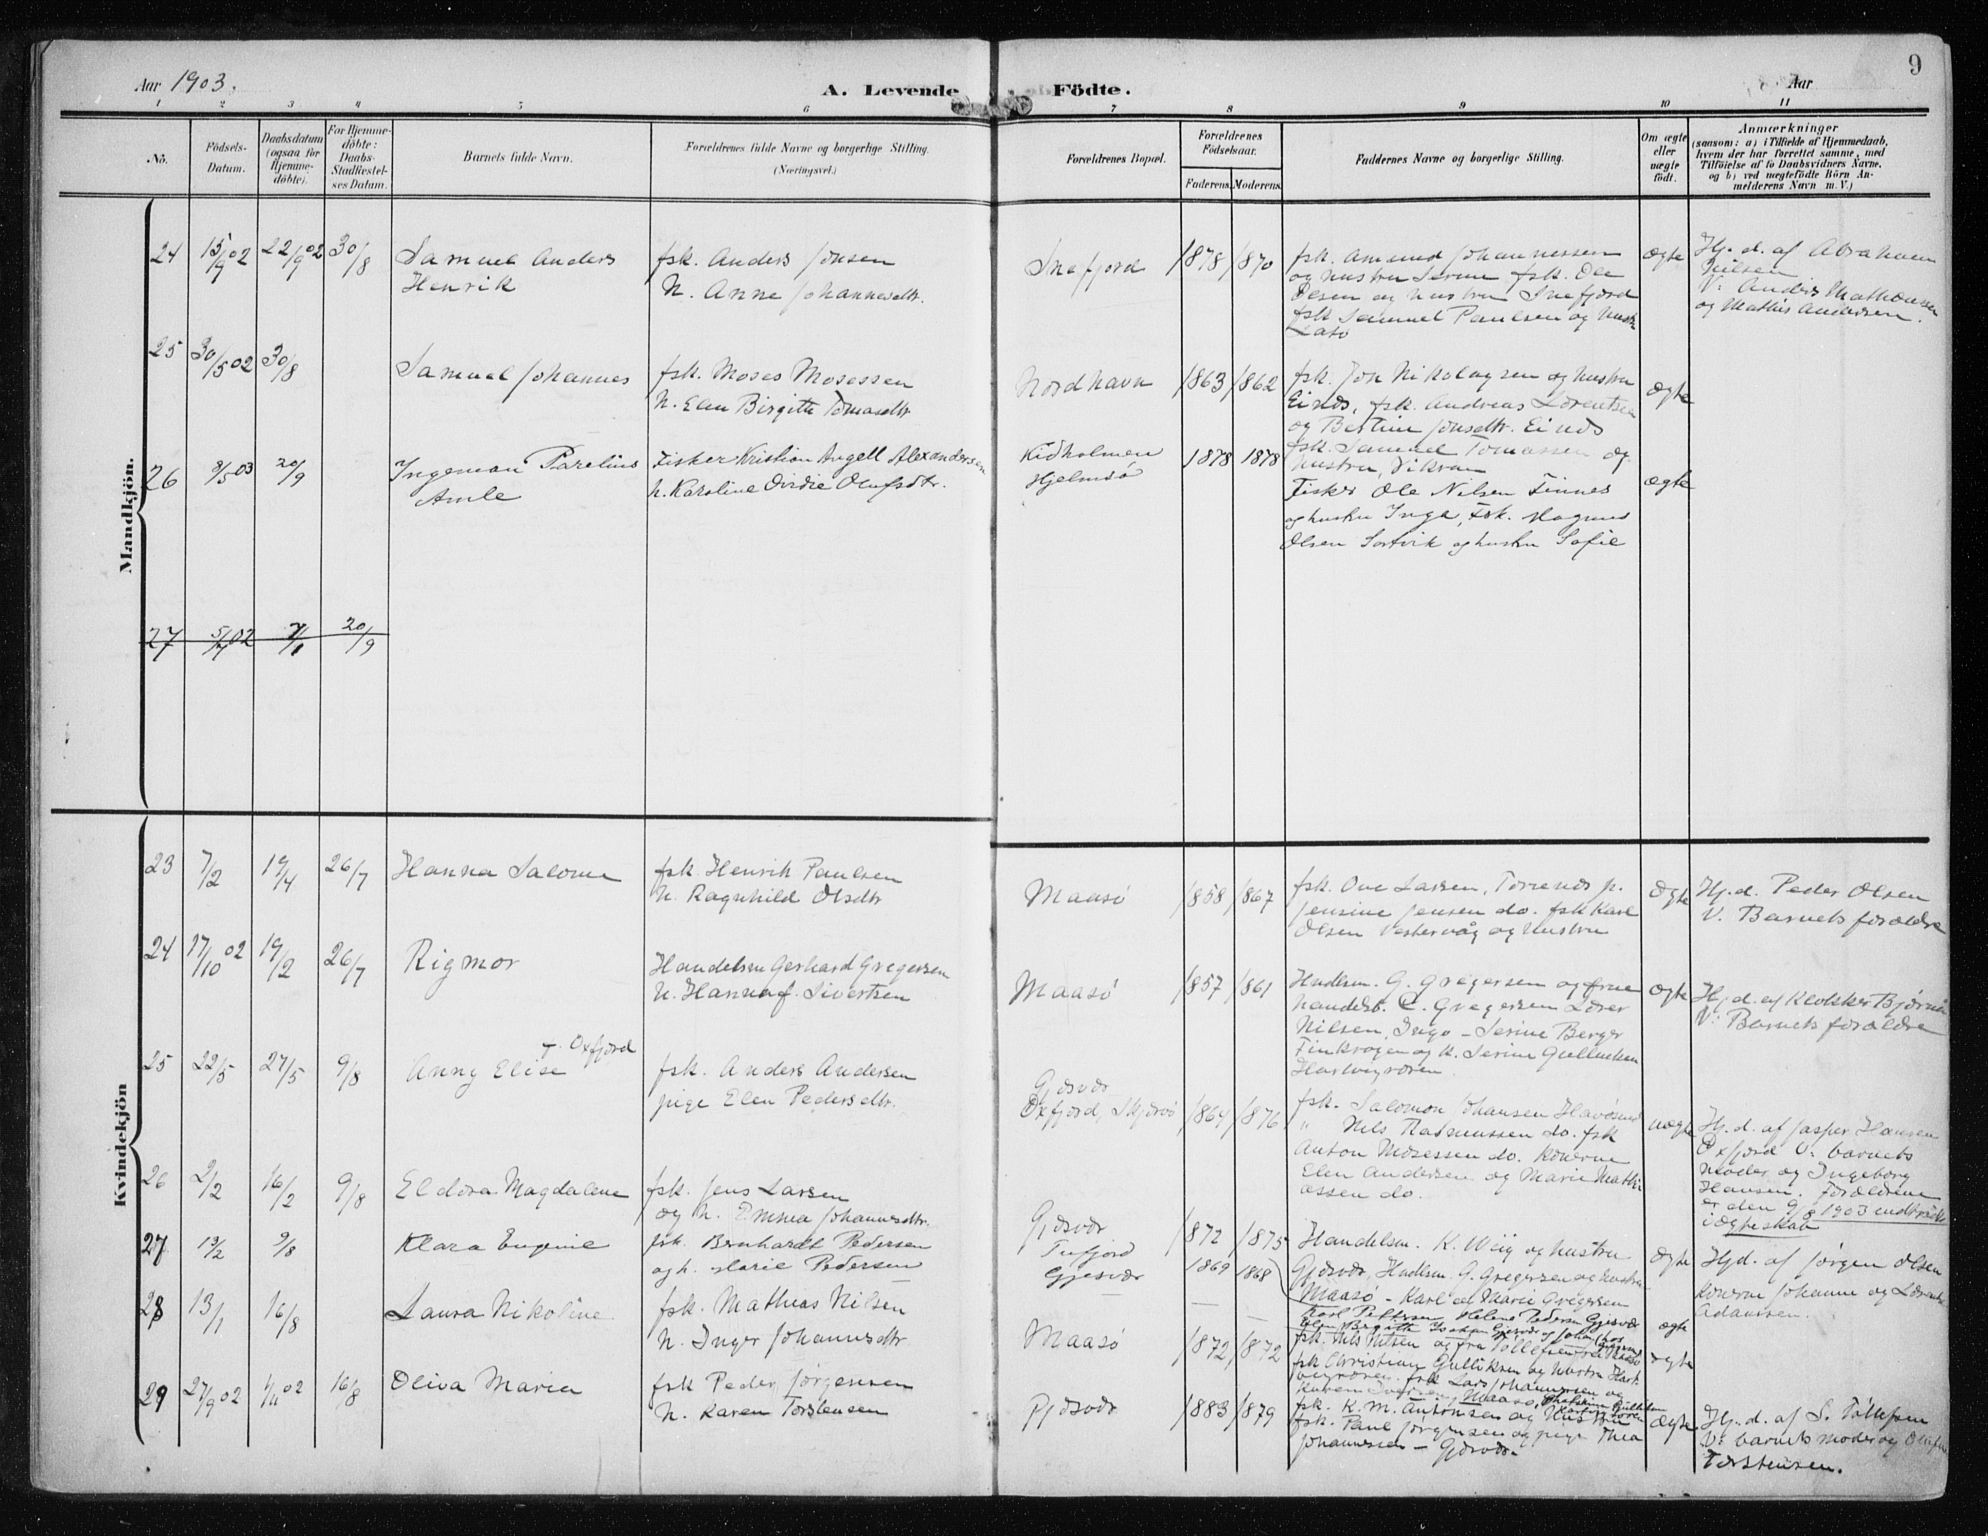 Aar 1903.
A. Levende
Födte.
Aar
9
1 2 3 4 5 6 7 8 9 10 11
No.
Födsels-
Datum.
Daabsdatum
(ogsaa for
Hjemme-
döbte).
For Hjemme-
döbte:
Daabs-
Stadfæstel-
ses Datum.
Barnets fulde Navn.
Forældrenes fulde Navne og borgerlige Stilling.
(Næringsvei.)
Forældrenes Bopæl.
Forældrenes
Födselsaar.
Faderens.
Moderens.
Faddernes Navne og borgerlige Stilling.
Om ægte
eller
uægte
födt.
Anmærkninger
(saasom: a) i Tilfælde af Hjemmedaab,
hvem der har forrettet samme, med
Tilföielse af to Daabsvidners Navne,
og b) ved uægtefödte Börn An-
melderens Navn m. V.)
Mandkjön.
24 15/9 02 22/9 02 30/8
Samuel Anders
Henrik
fsk. Anders Jonsen
H. Anne Johannesdtr.
Snefjord
1878 1870
fsk. Amund Johannessen
og hustru Serine fsk. Ole
Olsen og hustru Snefjord
fsk. Samuel Paulsen og hustr.
ægte
Hj. d. af Abraham
Nilsen
V: Anders Mathæusen
og Mathis Andersen.
25 30/5 02 30/8
Samuel Johannes
fsk. Moses Mosessen
H. Elen Birgitte Tomasdtr
Nordhavn
1863 1862
fsk. Jon Nikolaysen og hustru
fsk. Andreas Lorentsen
og Jonsdtr.
fsk. Samuel Tomassen og
hustru
ægte
26 9/5 03 20/9
Ingeman Parelius
Amle
Fisker Kristian Angell Alexandersen
h. Karoline Olufsdtr.
Kidholmen
Hjelmsö
1878 1878
Fisker Ole Nilsen Finnes
og hustru Inga, Fsk. Magnus
Olsen Sortvik og hustru Sofie
ægte
27 5/7 02 20/9
Kvindekjön
23 7/2 19/4 26/7
Hanna Salome
fsk. Henrik Paulsen
H. Ragnhild Olsdtr
Maasö
1858 1867
fsk. Ove Larsen, p.
Jensine Jensen do. fsk Karl
Olsen Vestervåg og hustru
Ægte
Hj. d. Peder Olsen
V. Barnets forældre
24 17/10 02 19/2 26/7
Rigmor
Handelsm Gerhard Gregersen
H. Hanna f. Sivertsen
Maasö
1857 1861
Hndlsm. G. Gregersen og frue
handelsb. C. Gregersen Lærer
Nilsen, Inga – Serine Berger
Finkrogen og K. Serine Gulliksen
ægte
Hj. d. af Klokker
V: Barnets forældre
25 22/5 27/5 9/8
Oxfjord
Anny Elise
fsk. Anders Andersen
pige Elen Pedersdtr.
Gjæsvær
Oxfjord, Skjervö
1864 1876
fsk. Salomon Johansen Havösund
" Nils Rasmussen do. fsk
Anton Mosessen do. Konerne
Elen Andersen og Marie Mathi
assen do.
uægte
Hj. d. af Jasper Hansen
Oxfjord V: barnets
moder og Ingeborg
Hansen. Forældrene
er den 9/8 1903 indtrådt
i ægteskab
26 2/2 16/2 9/8
Eldora Magdalene
fsk. Jens Larsen
og H. Emma Johannesdtr.
Gjæsvær
1872 1875
Handelsm. K. Wiig og hustru
Gjæsvær, Hndlsm. G. Gregersen og hustru
Maasö – Karl og Marie Gregersen
Ægte
Hjd. af Jörgen Olsen
Konerne Johanne og
27 19/2 9/8
Klara Eugenie
fsk. Bernhardt Pedersen
og h. Marie Pedersen
Tufjord
Gjesvær
1869 1868
Karl Pettersen Helene Pedersen Gjesvær
ægte
28 13/1 16/8
Laura Nikoline
fsk. Mathias Nilsen
H. Inger Johannesdtr
Maasö
1872 1872
fsk. Nils Nilsen og fru Tollefsen
fsk Christian Gulliksen og hustru
fsk Lars Johannessen og
Karen Iversen, Maasö,
ægte
29 27/9 02 1/11 02 16/8
Oliva Maria
fsk Peder Jörgensen
H. Karen Torstensen
Gjæsvær
1883 1879
fsk. K. M. Antonsen og hustru
fsk. Paul Jörgensen og pige Thea
Johannessen – Gjæsvær.
Ægte
Hj. d. af S. Tollefsen
V: barnets moder og
Torstensen.